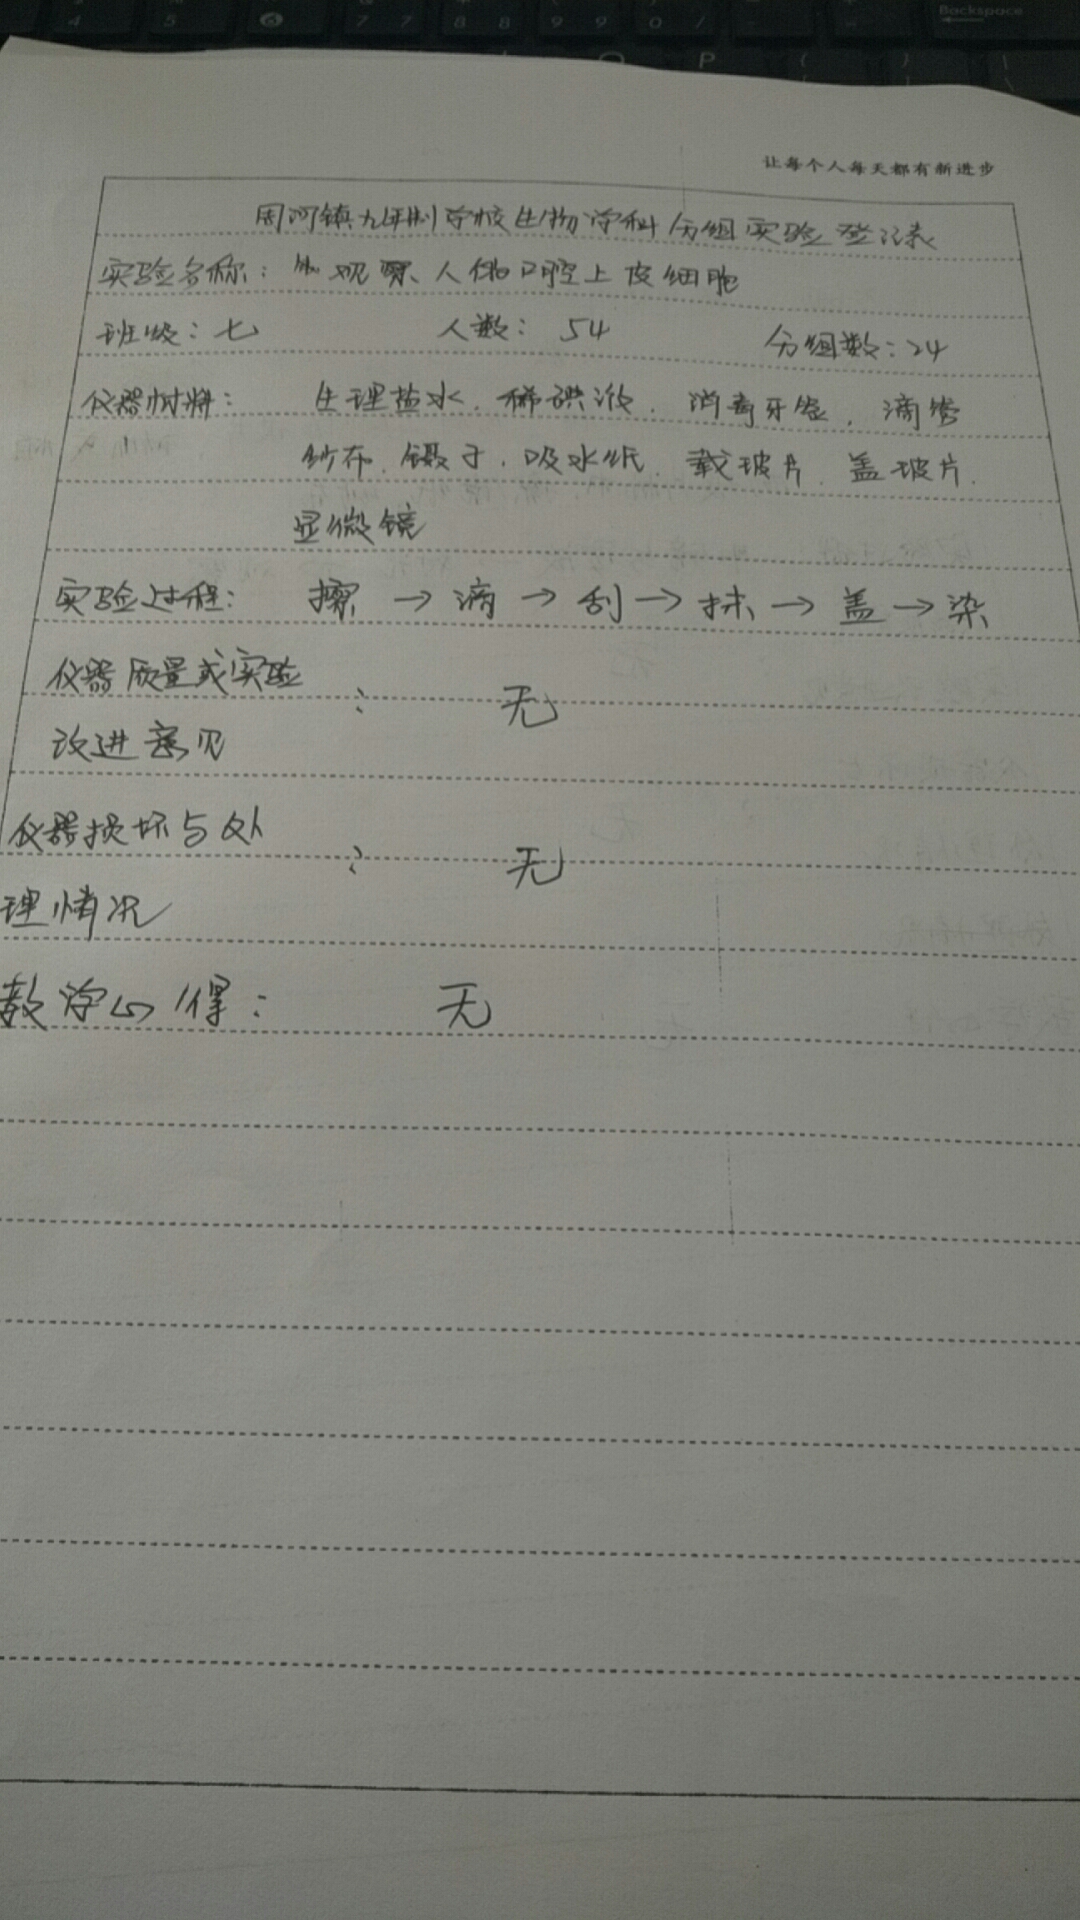 让每个人每天都有新进步
周河镇九年制学校生物学科分组实验登记表
实验名称：观察人体口腔上皮细胞
班级：七 人数：54 分组数：24
仪器材料： 生理盐水、稀碘液、消毒牙签、滴管
纱布、镊子、吸水纸、载玻片、盖玻片、
显微镜
实验过程： 擦→滴→刮→抹→盖→染
仪器质量或实验
： 无
改进意见
仪器损坏与处
： 无
理情况
教学心得： 无